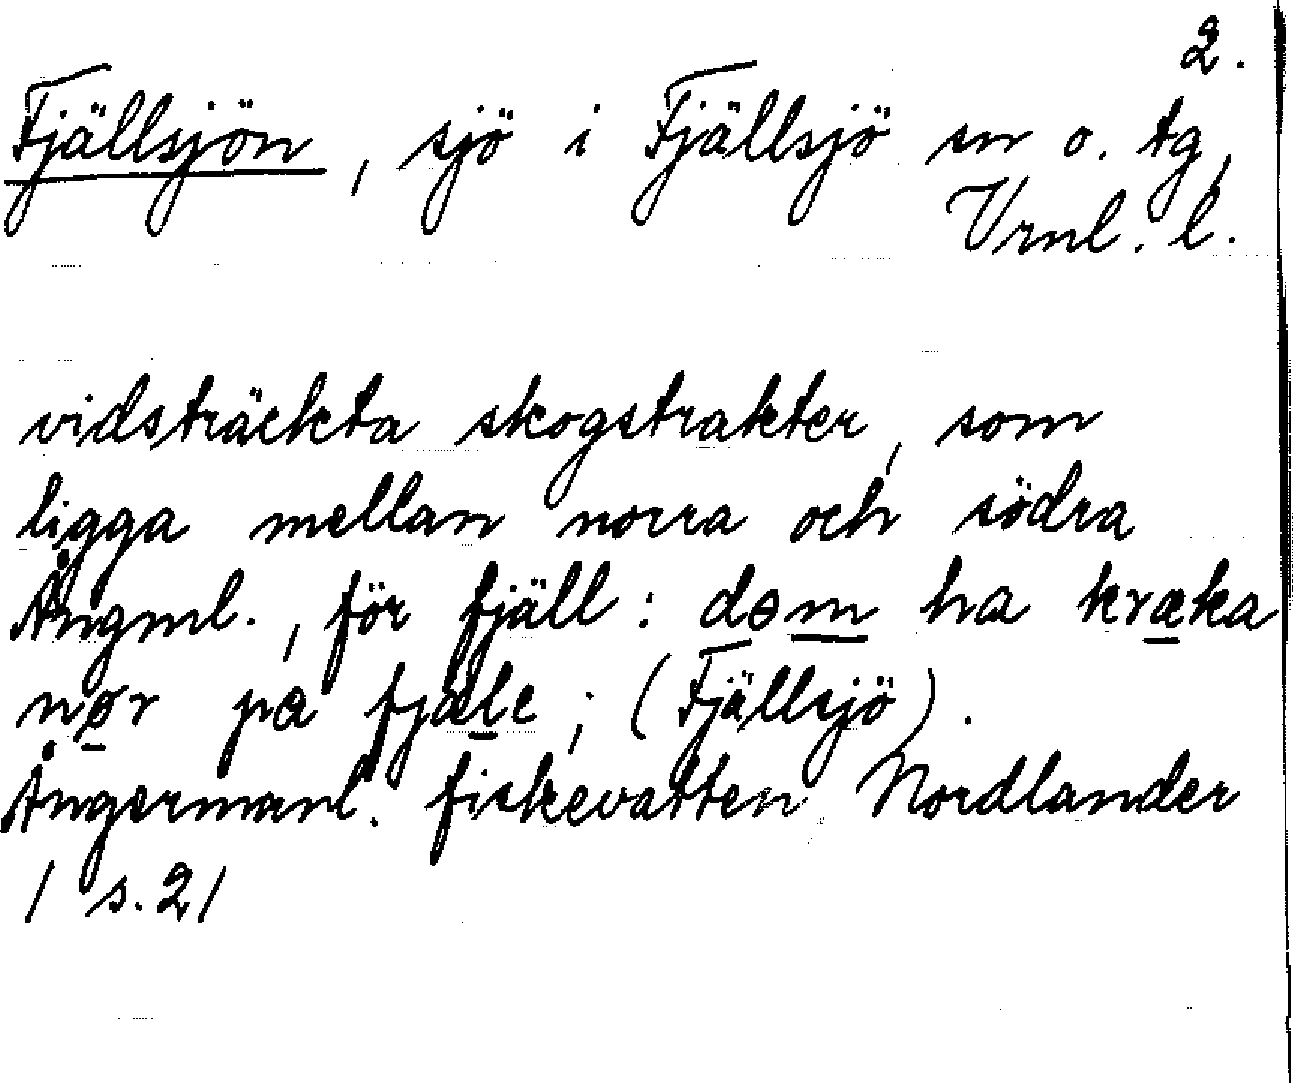 2.
Fjällsjön, sjö i Fjällsjö sn o. tg,
Vrnl. l.
vidsträckta skogstrakter, som
ligga mellan norra och södra
Ångml., för fjäll: dəm ha kræka
nør på fjæle; (Fjällsjö).
Ångermanl. fiskevatten Nordlander
/ s. 2/